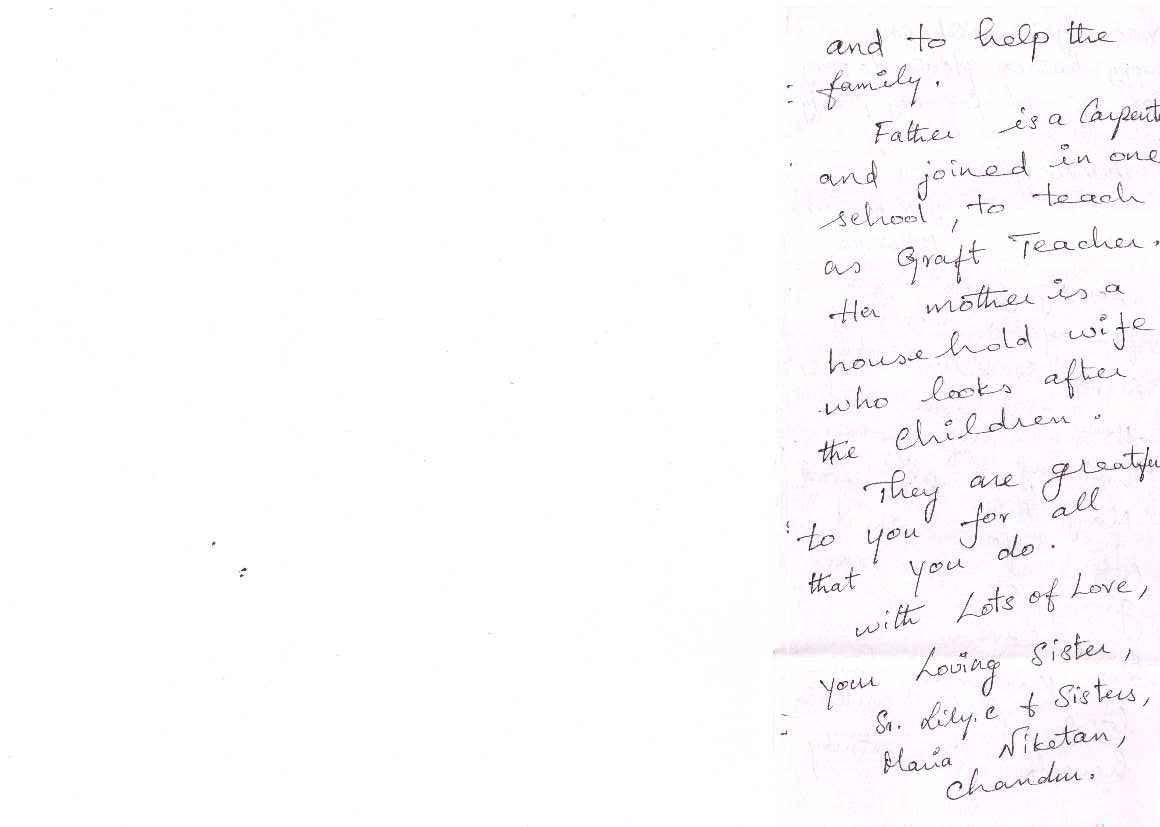 and to help the
family.
Father is a Carpent
and joined in one
school, to teach
as Graft Teacher.
Her mother is a
house hold wife
who looks after
the children.
They are greatfu
to you for all
that you do.
with Lots of Love,
your Loving Sister,
Sr. Lily.C & Sisters,
Maria Niketan,
Chandur.